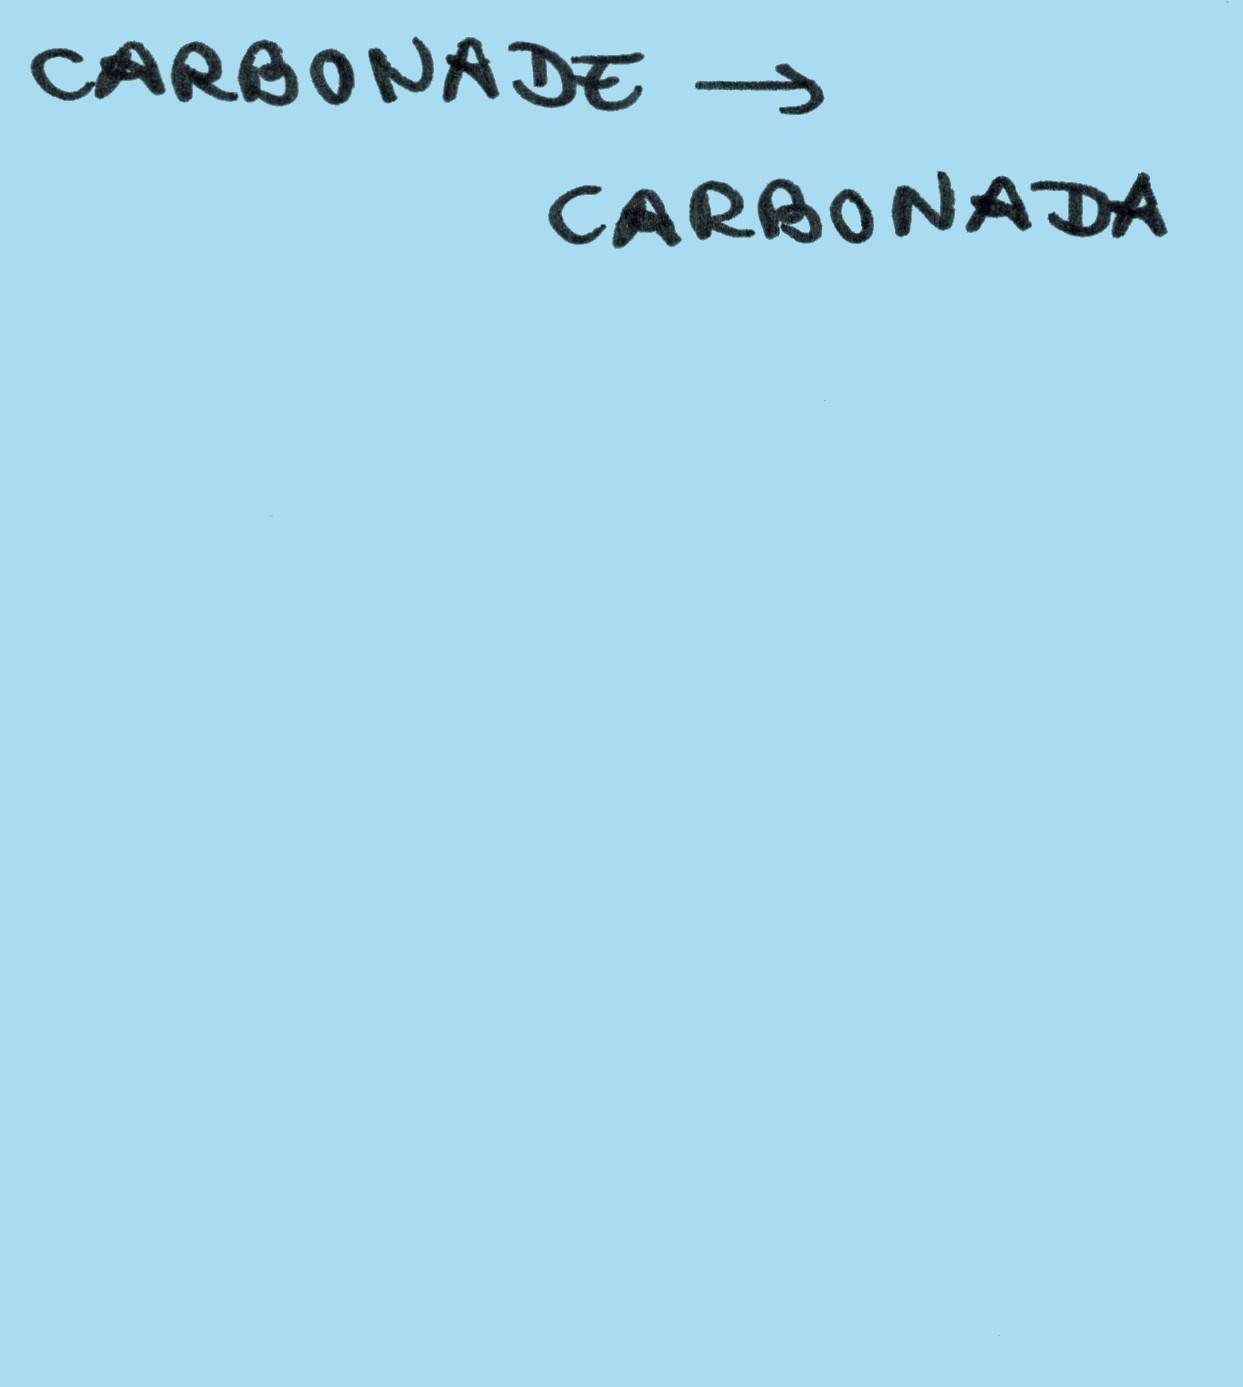 CARBONADE →
CARBONADA